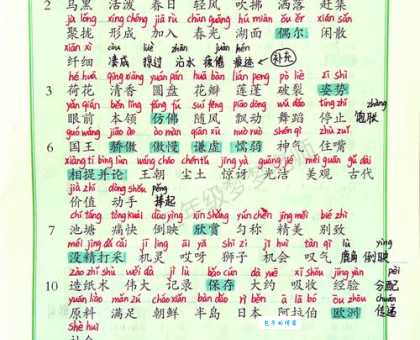 2 乌黑 活泼 春日 轻风 吹拂 洒落 赶集
jù lǒng xíng chéng jiā rù chūn guāng hú miàn ǒu ěr xián sǎn
聚拢 形成 加入 春光 湖面 偶尔 闲散
xiān xì còu liè zhān juàn hén
纤细 凑成 掠过 沾水 疲倦 痕迹 补充
hé huā qīng xiāng yuán pán huā bàn lián peng pò liè zī shì
3 荷花 清香 圆盘 花瓣 莲蓬 破裂 姿势
yǎn qián běn lǐng fǎng fú suí fēng piāo dòng wǔ dǎo tíng zhǐ zhàng
眼前 本领 仿佛 随风 飘动 舞蹈 停止 饱胀
guó wáng jiāo ào ào màn qiān xū nuò ruò shén qì zhù zuǐ
6 国王 骄傲 傲慢 谦虚 懦弱 神气 住嘴
xiāng tí bìng lùn wáng cháo chén tǔ jīng yà guāng jié měi guān gǔ dài
相提并论 王朝 尘土 惊讶 光洁 美观 古代
jià zhí dòng shǒu pěng
价值 动手 捧起
chí táng tòng kuài dào yìng xīn shǎng yún chèn jīng měi bié zhì
7 池塘 痛快 倒映 欣赏 匀称 精美 别致
méi jīng dǎ cǎi jī líng āi yā shī zi jī huì tàn qì lù yìng
没精打采 机灵 哎呀 狮子 机会 叹气 鹿角 倒映
zào zhǐ shù wěi dà jì lù bǎo cún dà yuē xī shōu jīng yàn pèi
10 造纸术 伟大 记录 保存 大约 吸收 经验 分配
yuán liào mǎn zú cháo xiǎn bàn dǎo rì běn ā lā bó ōu zhōu chuán
原料 满足 朝鲜 半岛 日本 阿拉伯 欧洲 传递
shè huì
社会